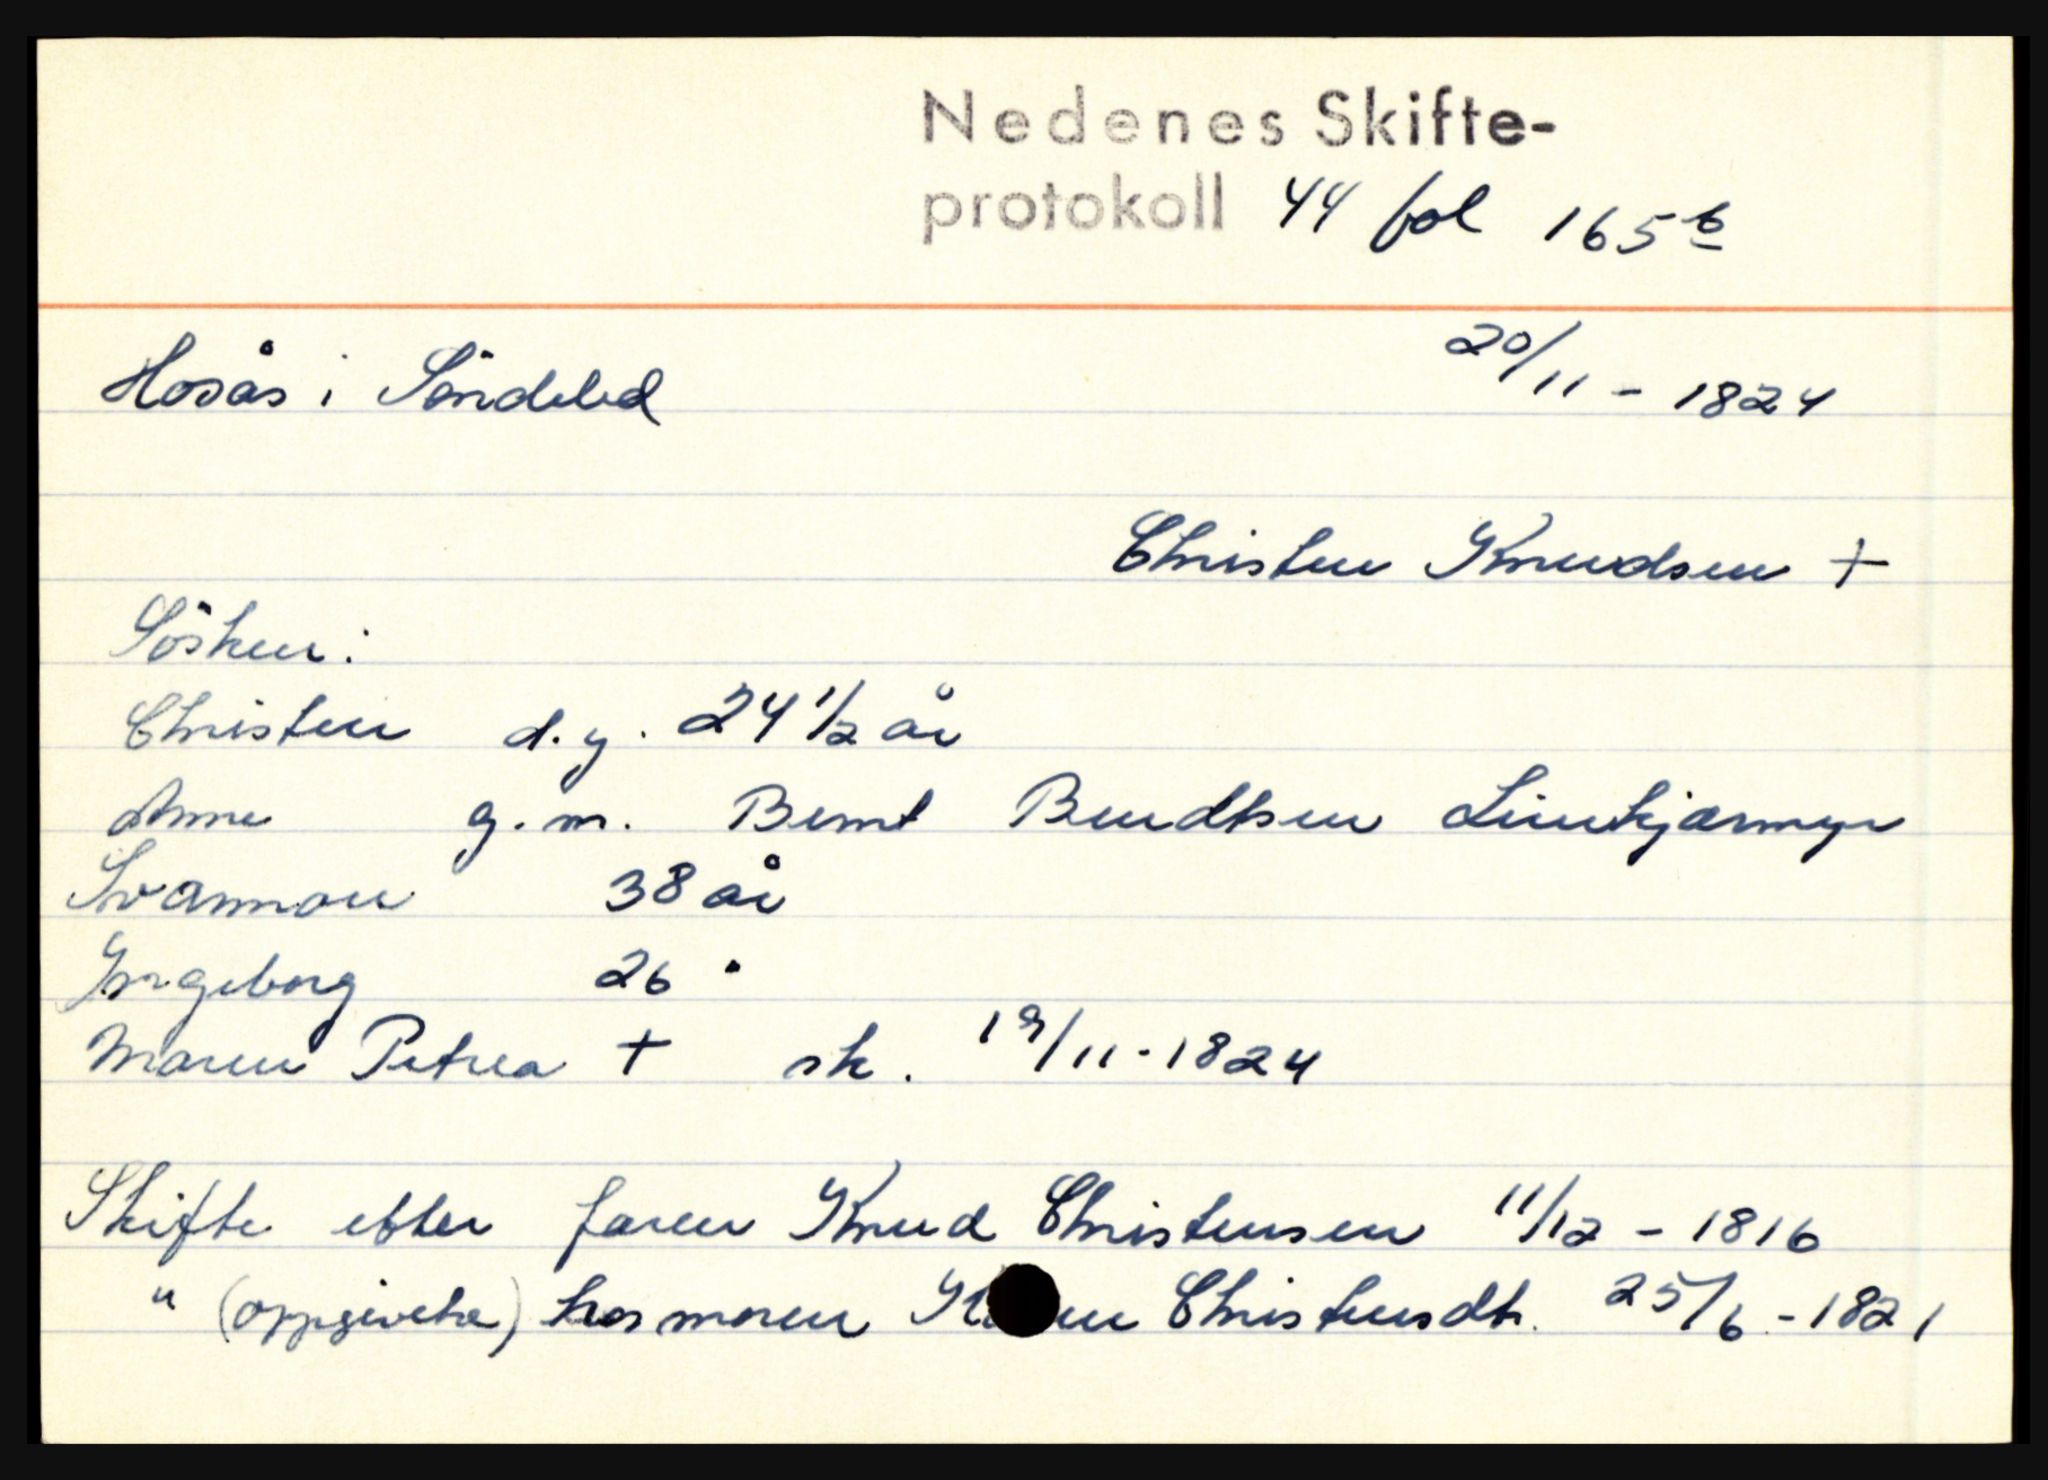 Nedenes Skifte-
protokoll 44 fol 165b
Hosås i Söndeled 20/11 - 1824
Christen Knudsen +
Sösken:
Christen d.y. 24 1/2 år
Anne g.m. Bernt Bendtsen
Svannou 38 år
Ingeborg 26 "
Maren Petrea + sk. 19/11 - 1824
Skifte etter faren Knud Christensen 11/12 - 1816
" (oppgivelse) hos moren Christensdtr. 25/6 - 1821